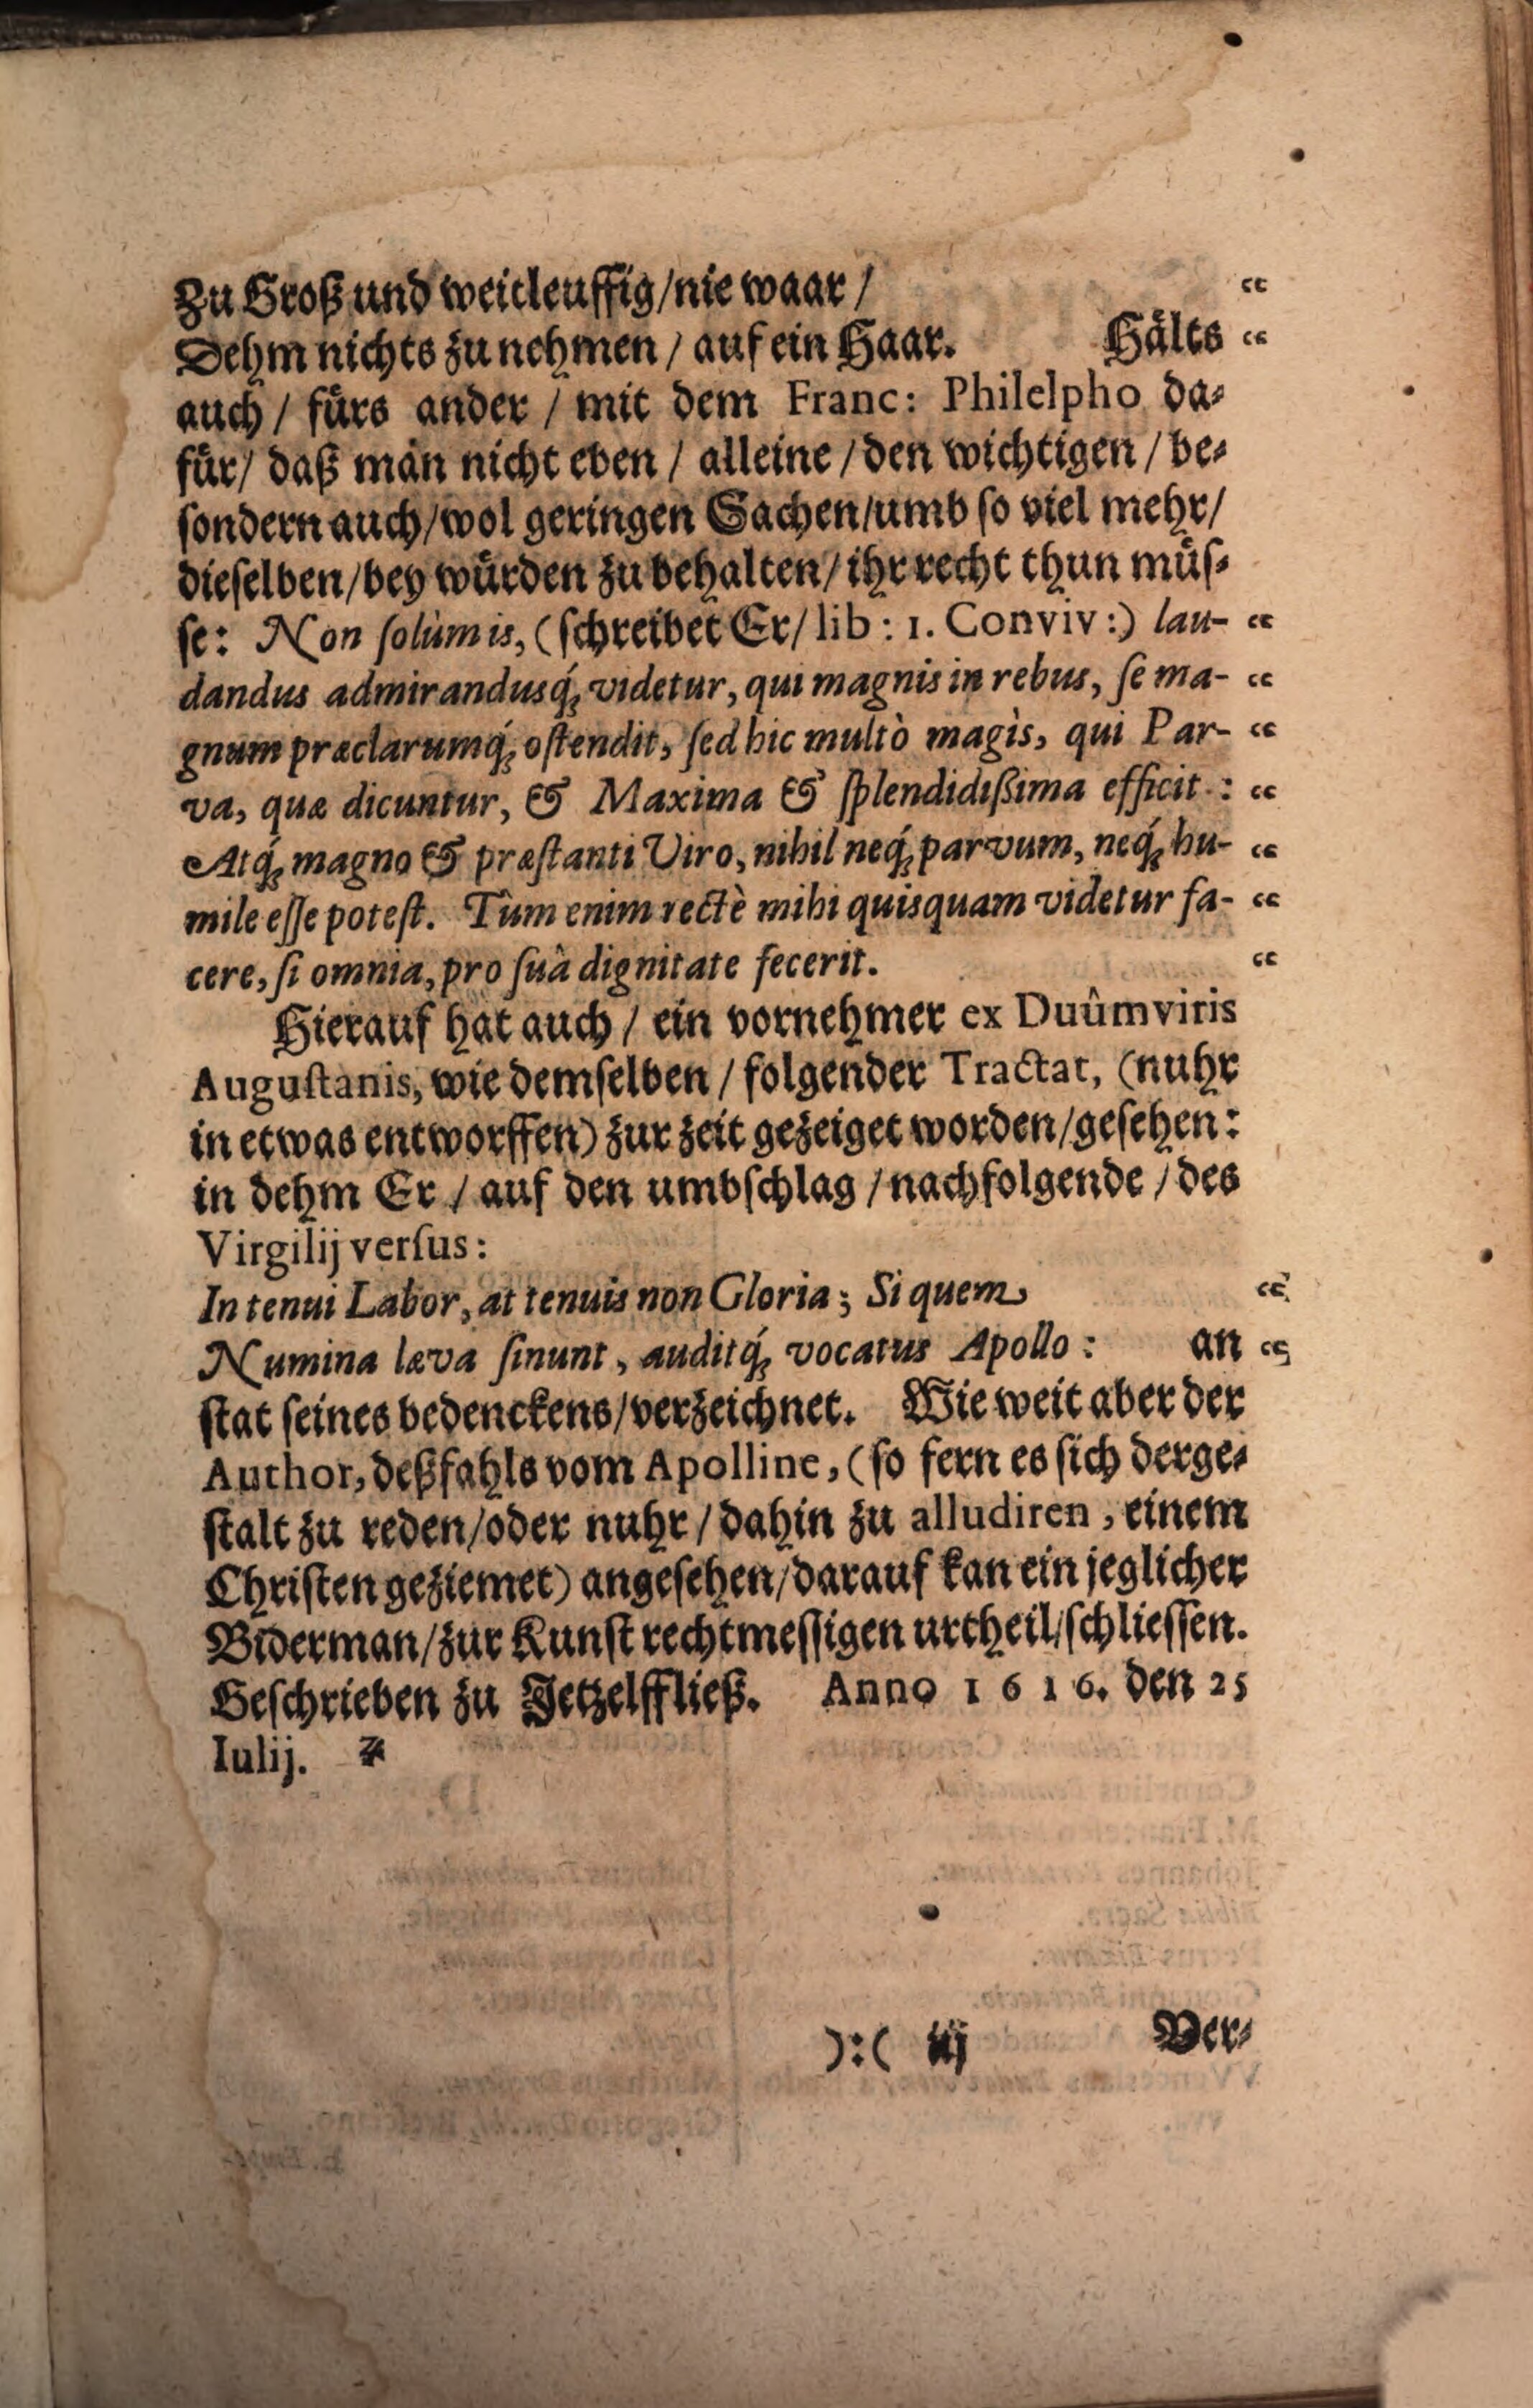 Zu Groß und weitleuffig/nie waar / “
Dehm nichts zu nehmen / auf ein Haar. Hålts “
auch / fůrs ander / mit dem Franc: Philelpho da⸗
fůr/ daß man nicht eben / alleine / den wichtigen / be⸗
ſondern auch/wol geringen Sachen/umb ſo viel mehr/
dieſelben/bey wůrden zu behalten/ ihr recht thun můſ⸗
ſe: Non ſolùm is, (ſchreibet Er/ lib: 1. Conviv:) lau- “
dandus admirandusq́ꝫ videtur, qui magnis in rebus, ſe ma- “
gnum præclarumq́ꝫ oſtendit, ſed hic multò magìs, qui Par- “
va, quæ dicuntur, & Maxima & ſplendidißima efficit: “
Atq́ꝫ magno & præſtanti Viro, nihil neq́ꝫ parvum, neq́ꝫ hu- “
mile eſſe poteſt. Tùm enim rectè mihi quisquam videtur fa- “
cere, ſi omnia, pro ſuâ dignitate fecerit. “
Hierauf hat auch / ein vornehmer ex Duûmviris
Auguſtanis, wie demſelben / folgender Tractat, (nuhr
in etwas entworffen) zur zeit gezeiget worden/geſehen:
in dehm Er / auf den umbſchlag / nachfolgende / des
Virgilij verſus:
In tenui Labor, at tenuis non Gloria; Si quem “
Numina læva ſinunt, auditq́ꝫ vocatus Apollo: an “
ſtat ſeines bedenckens/verzeichnet. Wie weit aber der
Author, deßfahls vom Apolline, (ſo fern es ſich derge⸗
ſtalt zu reden/oder nuhr / dahin zu alludiren, einem
Chriſten geziemet) angeſehen/darauf kan ein jeglicher
Biderman/zur Kunſt rechtmeſſigen urtheil/ſchlieſſen.
Geſchrieben zu Jetzelffließ. Anno 1616. den 25
Iulij.
):( iij Ver⸗